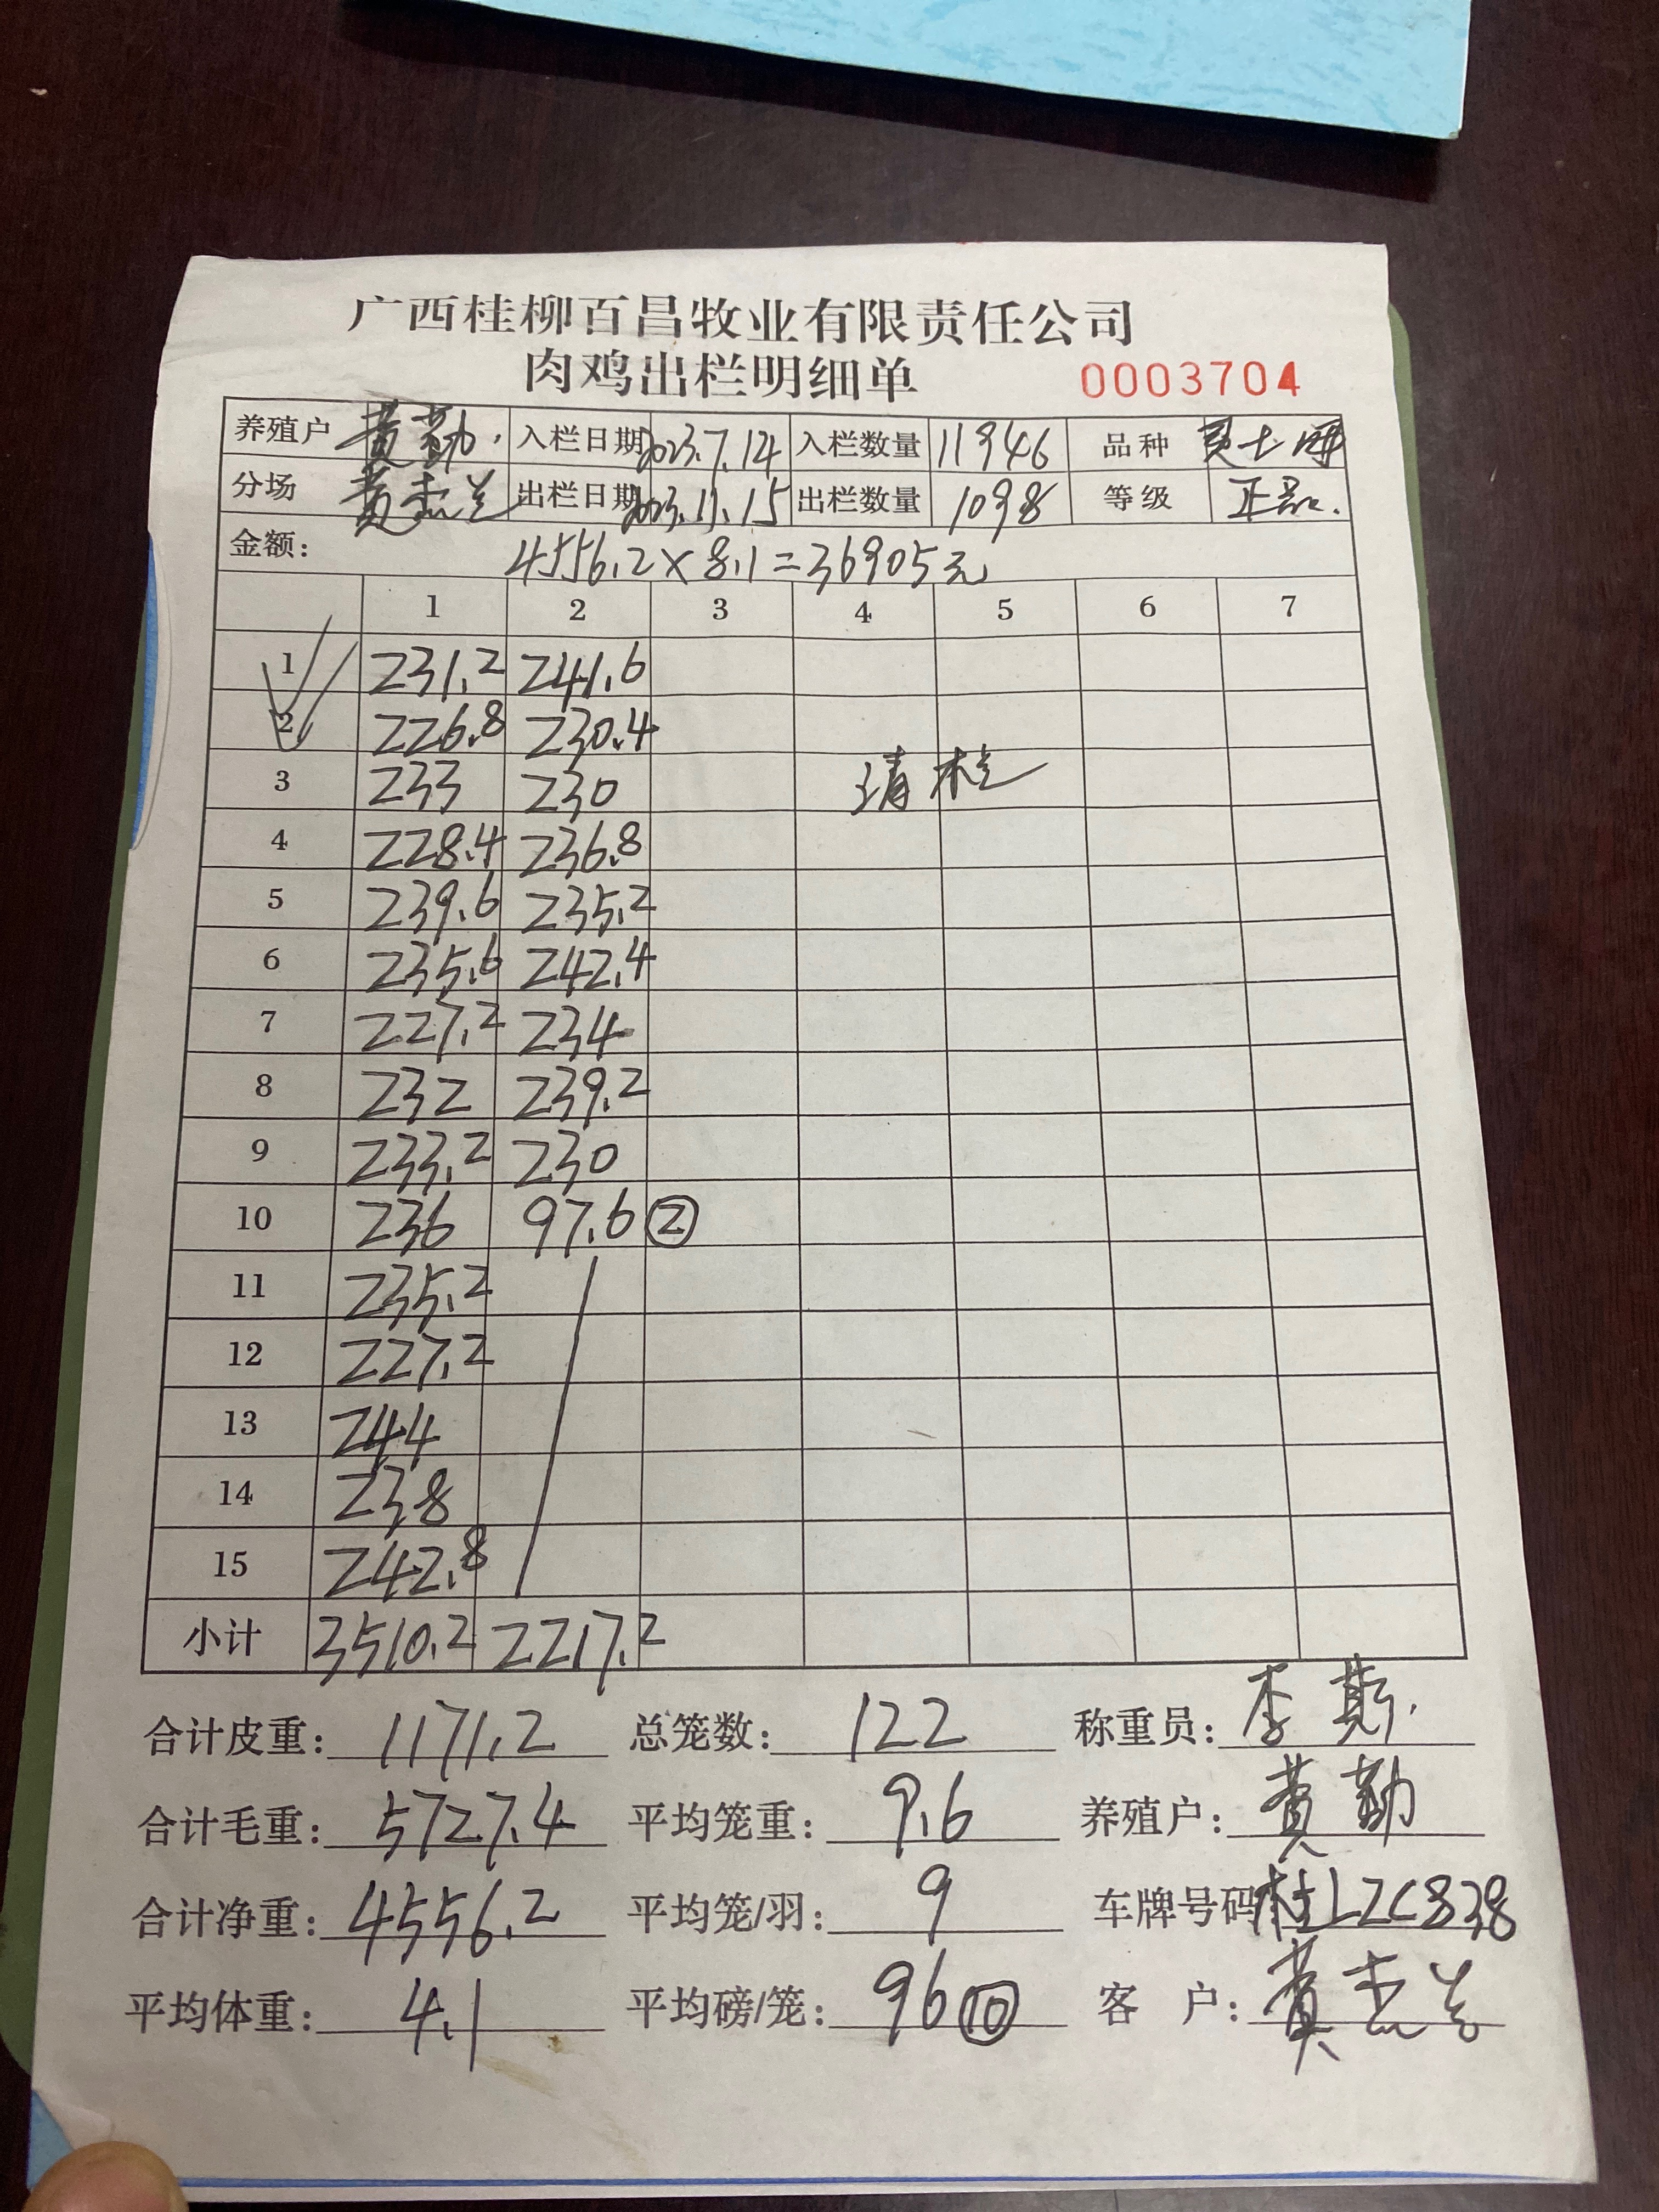 广西桂柳百昌牧业有限责任公司
肉鸡出栏明细单 0003704
养殖户 黄勤 入栏日期 2023.7.14 入栏数量 11946 品种
分场 出栏日期 2023.11.15 出栏数量 1098 等级 正品.
金额: 4556.2×8.1=36905元
1 2 3 4 5 6 7
1 231.2 241.6
2 226.8 230.4
3 233 230
4 228.4 236.8
5 239.6 235.2
6 235.6 242.4
7 227.2 234
8 232 239.2
9 233.2 230
10 236 97.6 ②
11 235.2
12 227.2
13 244
14 238
15 242.8
小计 3510.2 2217.2
合计皮重: 1171.2 总笼数: 122 称重员: 李斯.
合计毛重: 5727.4 平均笼重: 9.6 养殖户: 黄勤
合计净重: 4556.2 平均笼/羽: 9 车牌号码 桂LZC838
平均体重: 4.1 平均磅/笼: 96 ⑩ 客户: 黄